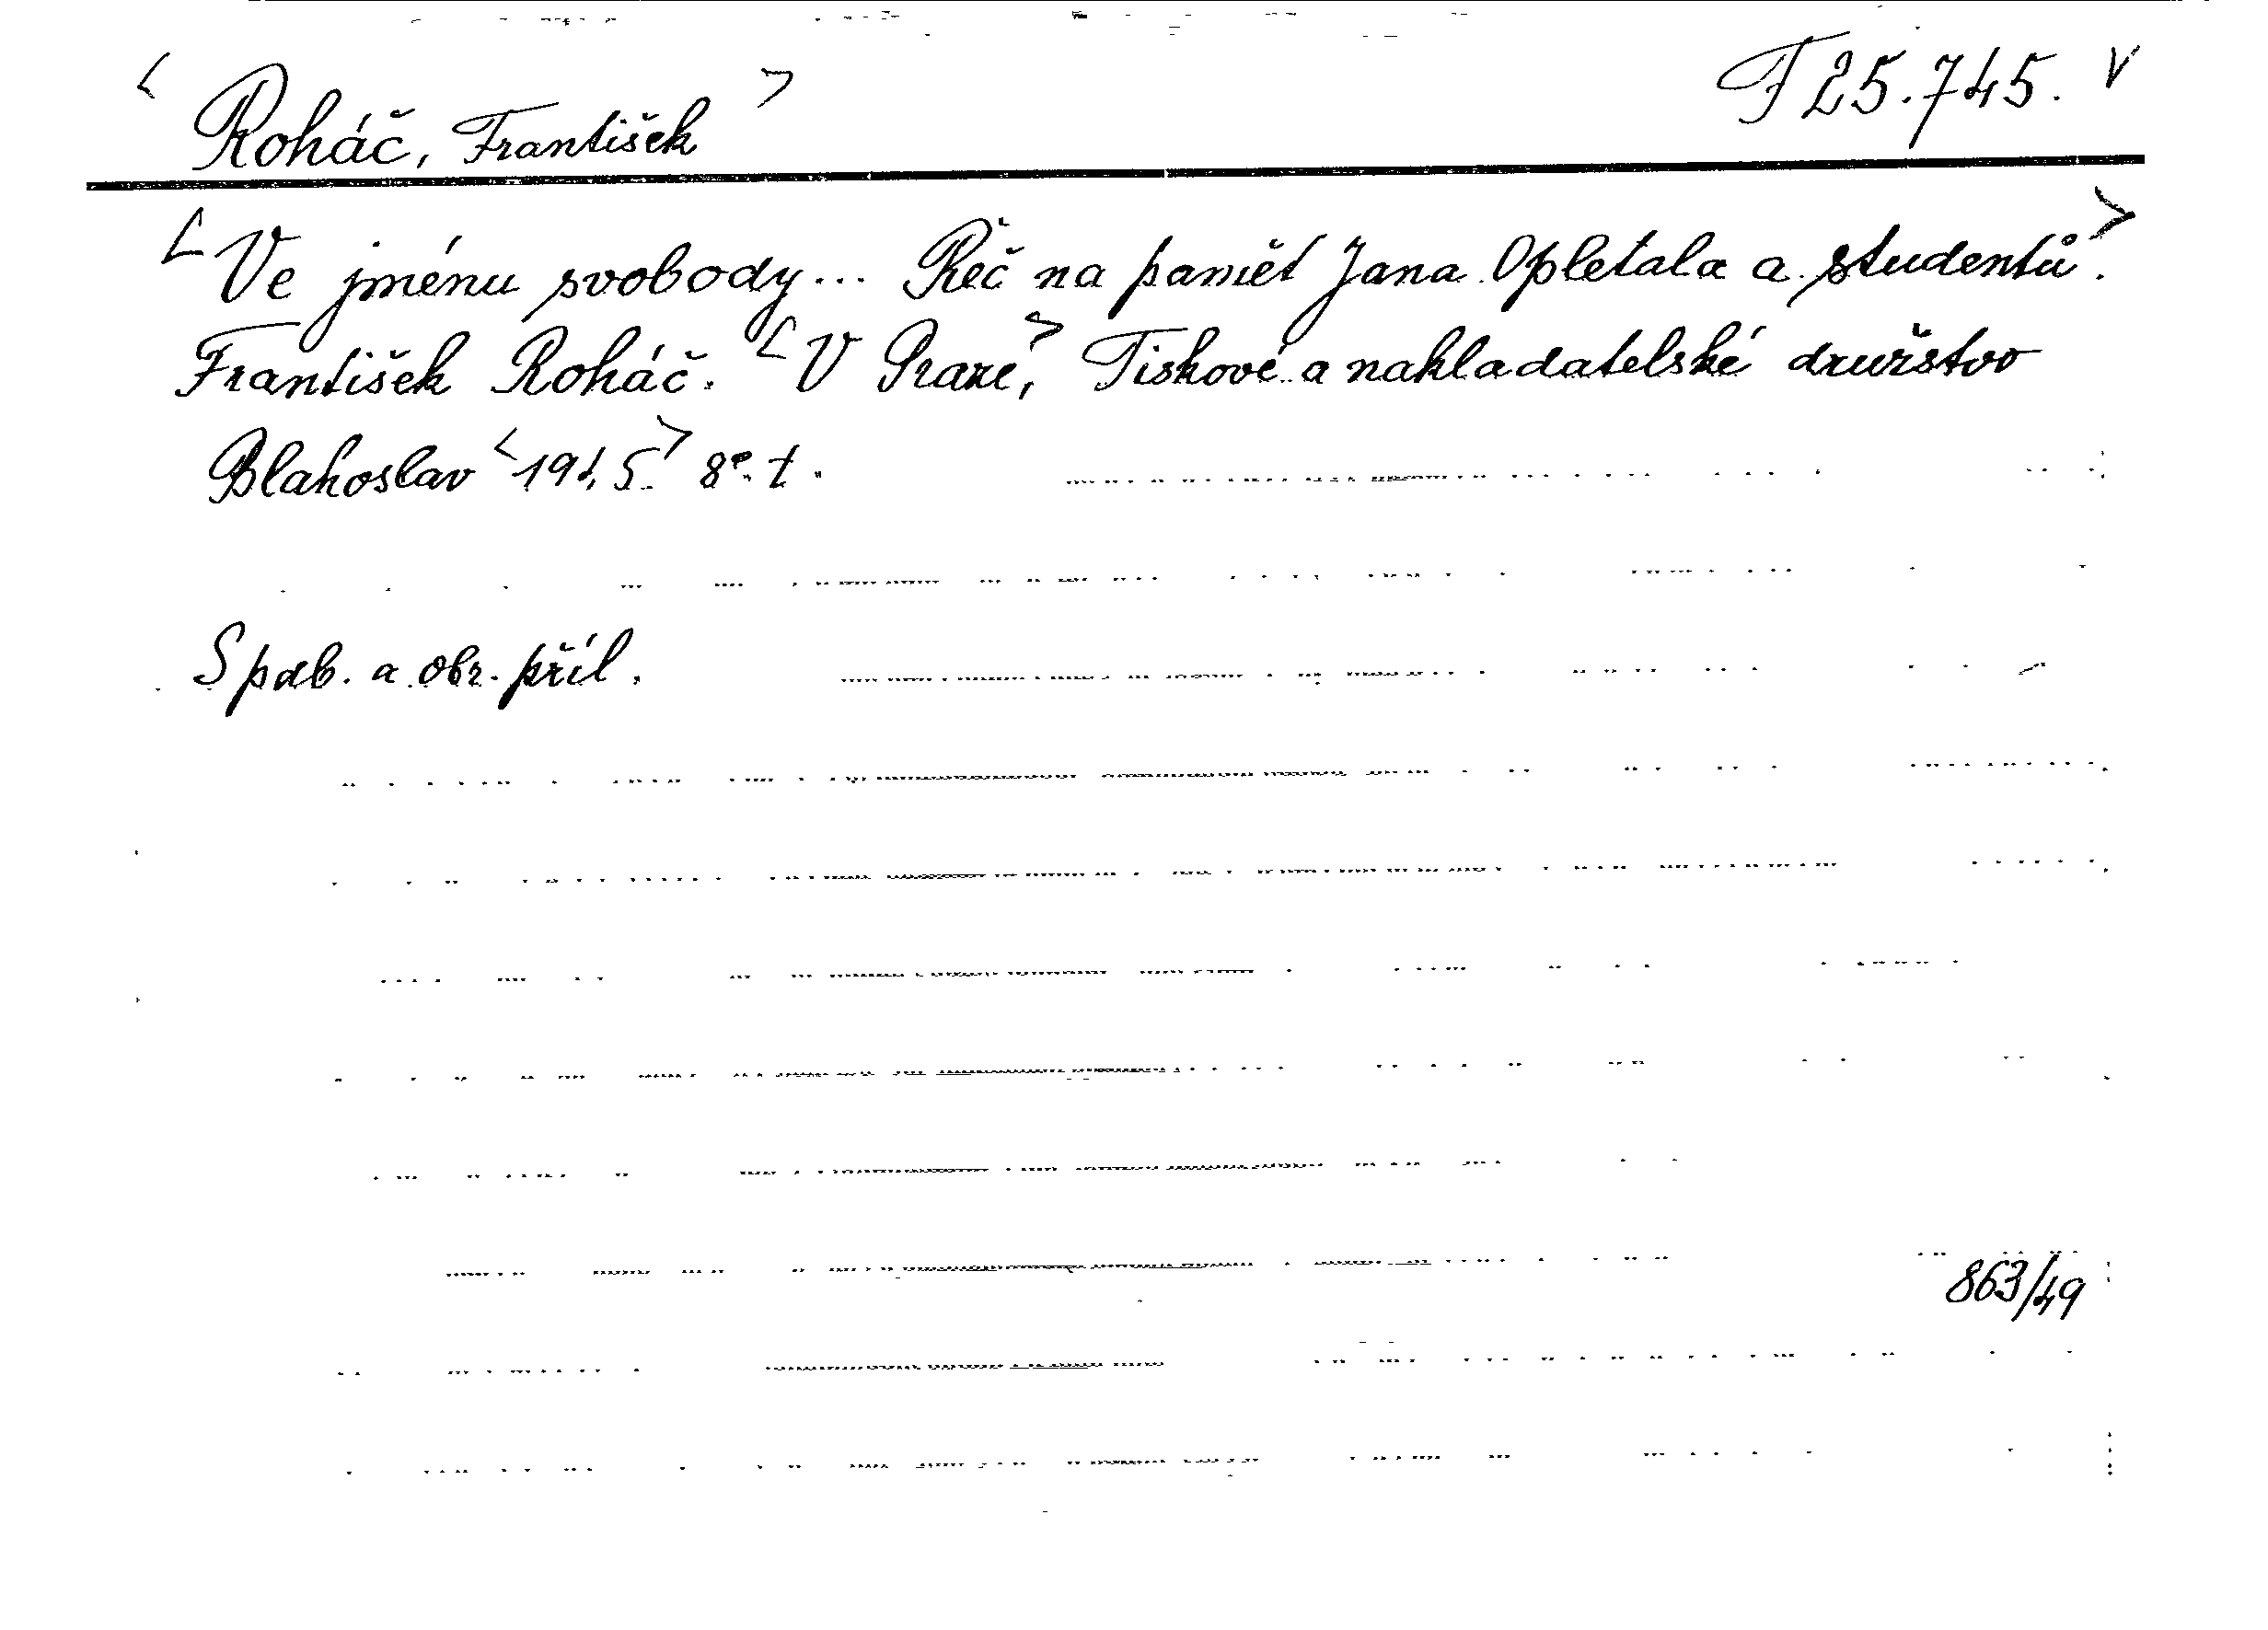 < Roháč, František > T 25.745. v
< Ve jménu svobody... Řeč na paměť Jana Opletala a studentů. >
František Roháč. < V Praze, > Tiskové a nakladatelské družstvo
Blahoslav < 1945. > 8°. t.
S pdb. a obr. příl.
863/49